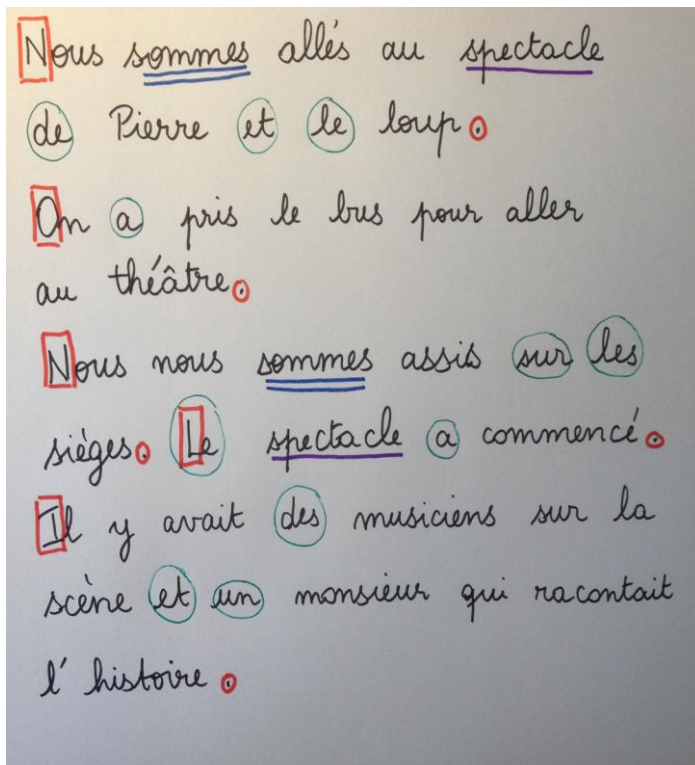 Nous sommes allés au spectacle
de Pierre et le loup.
On a pris le bus pour aller
au théâtre.
Nous nous sommes assis sur les
sièges. Le spectacle a commencé.
Il y avait des musiciens sur la
scène et un monsieur qui racontait
l'histoire.